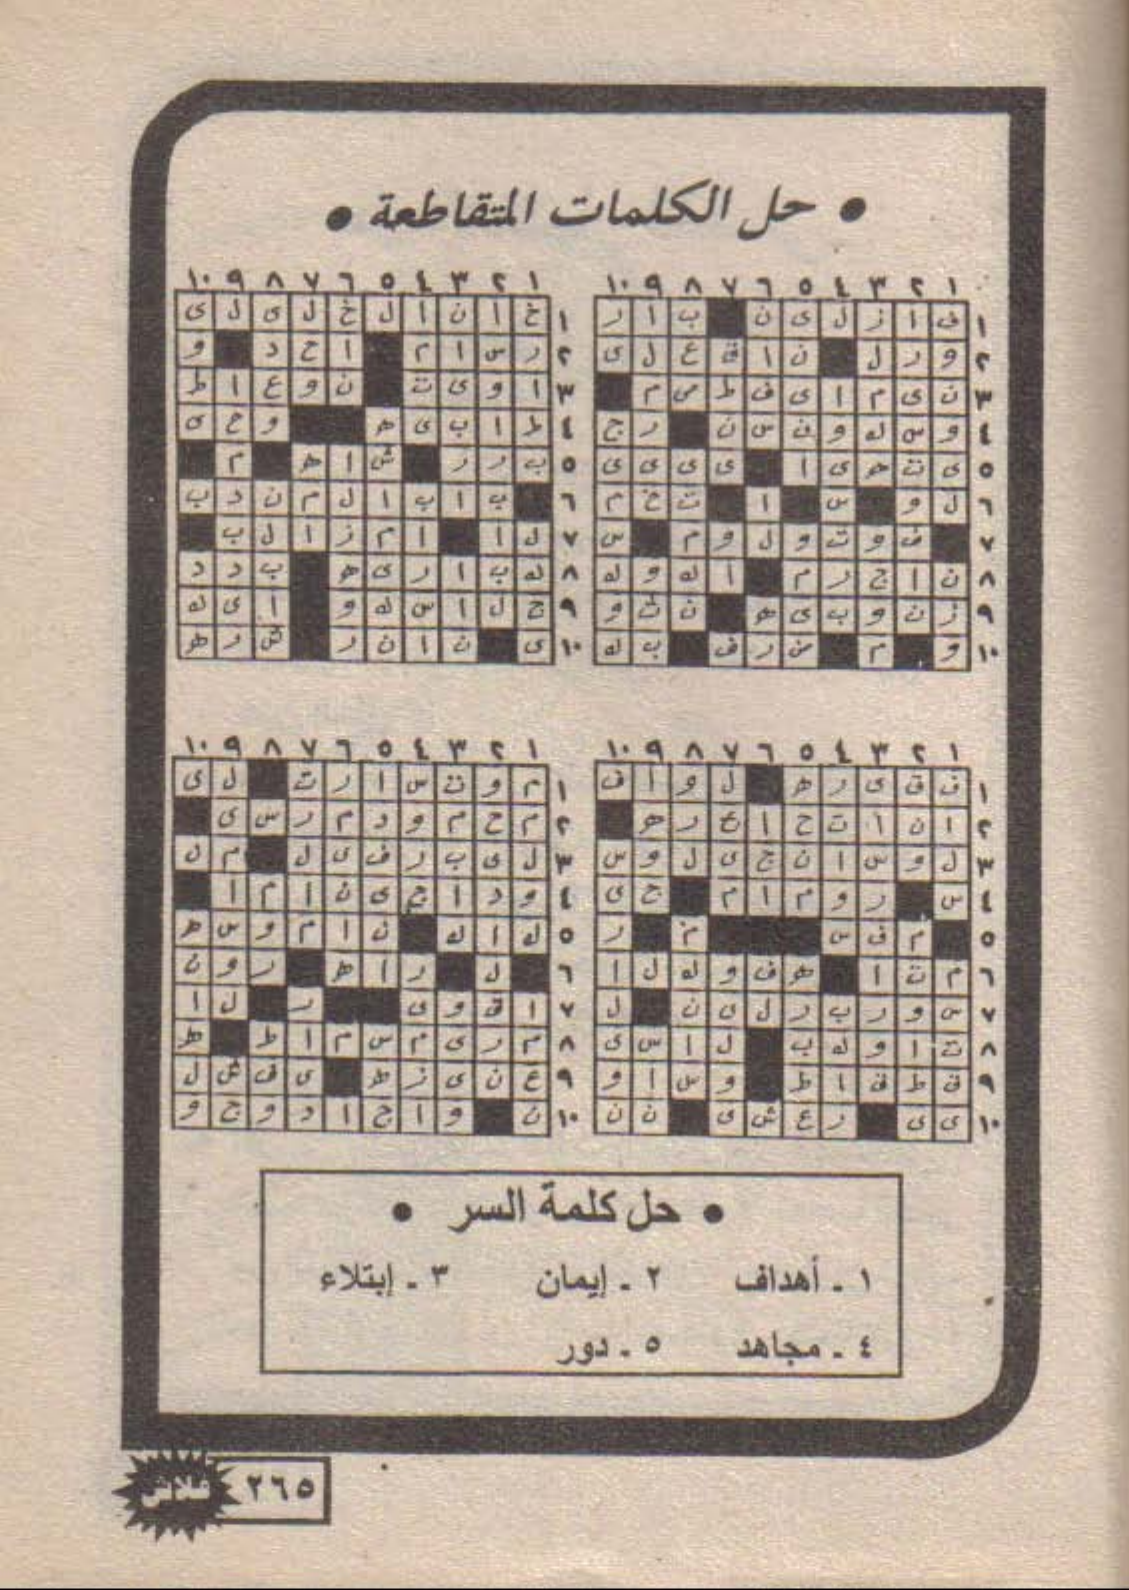 • حل الكلمات المتقاطعة •
١ ٢ ٣ ٤ ٥ ٦ ٧ ٨ ٩ ١٠
١ ف ا ز ل ى ن ب ا ر
٢ و ر ل ن ا ق ع ل ى
٣ ن ى م ا ى ف ط س م
٤ و س ك و ن س ن ر ج
٥ ى ت ه ى ا ى ى ى ى
٦ ل و س ا ت خ م
٧ ف و ت و ل و م س
٨ ن ا ج ر م ا ك و ك
٩ ز ن و ب ى ه ن ت و
١٠ و م ر ف ب ك
١ ٢ ٣ ٤ ٥ ٦ ٧ ٨ ٩ ١٠
١ خ ا ن ا ل خ ل ى ل ى
٢ ر س ا م ا ح د و
٣ ا و ى ت ن و ع ا ط
٤ ط ا ب ى ه و ح ى
٥ ب ر ر ش ا ه م
٦ ب ا ب ا ل م ن د ب
٧ ل ا ا م ز ا ل ب
٨ ك ب ا ر ى ه ب د د
٩ ج ل ا س ك و ا ى ك
١٠ ى ن ا ن ر ش ر ه
١ ٢ ٣ ٤ ٥ ٦ ٧ ٨ ٩ ١٠
١ ف ق ى ر ه ل و ا ف
٢ ا ن ا ت ح ا ع ر ه
٣ ل و س ا ن ج ى ل و س
٤ س ر و م ا م ج ى
٥ م ف س م ر
٦ م ت ا ه ف و ك ل ا
٧ س و ر ب ر ل ى ن ل
٨ ت ا و ك ب ل ا س ى
٩ ق ط ف ا ط و س ا و
١٠ ى ى ر ع ش ى ن ن
١ ٢ ٣ ٤ ٥ ٦ ٧ ٨ ٩ ١٠
١ م و ت س ا ر ت ل ى
٢ م ح م و د م ر س ى
٣ ل ى ب ر ف ى ل م ل
٤ و د ا ج ى ن ا م ا
٥ ك ا ك ن ا م و س ه
٦ ل ر ا ه ر و ن
٧ ا ق و ى ر ل ا
٨ م ر ى م س م ا ط ط
٩ ع ن ى ز ه ى ف ش ل
١٠ ن و ا ج ا د و ج و
• حل كلمة السر •
١ ـ أهداف ٢ ـ إيمان ٣ ـ إبتلاء
٤ ـ مجاهد ٥ ـ دور
٢٦٥ فلاش